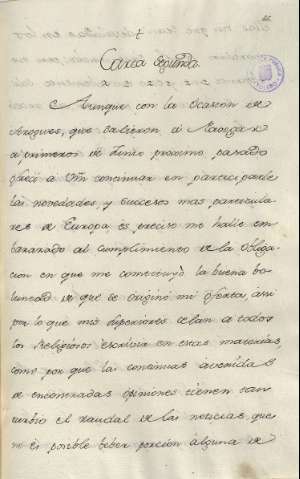 Carta segunda.
Aunque con la Ocasion de
que salieron a
a primeros de Junio proximo pasado
ofreci a Vm continuar en participarle
las novedades, y sucesos mas particula
res de Europa, es preciso me halle em
barazado al cumplimiento de la obliga
cion en que me constituyó la buena vo
luntad de que se originó mi oferta, asi
por lo que mis Superiores celan a todos
los Religiosos escrivir en estas materias,
como por que las continuas avenidas
de encontradas opiniones tienen tan
turbio el raudal de las noticias, que
no es posible beber porcion alguna de